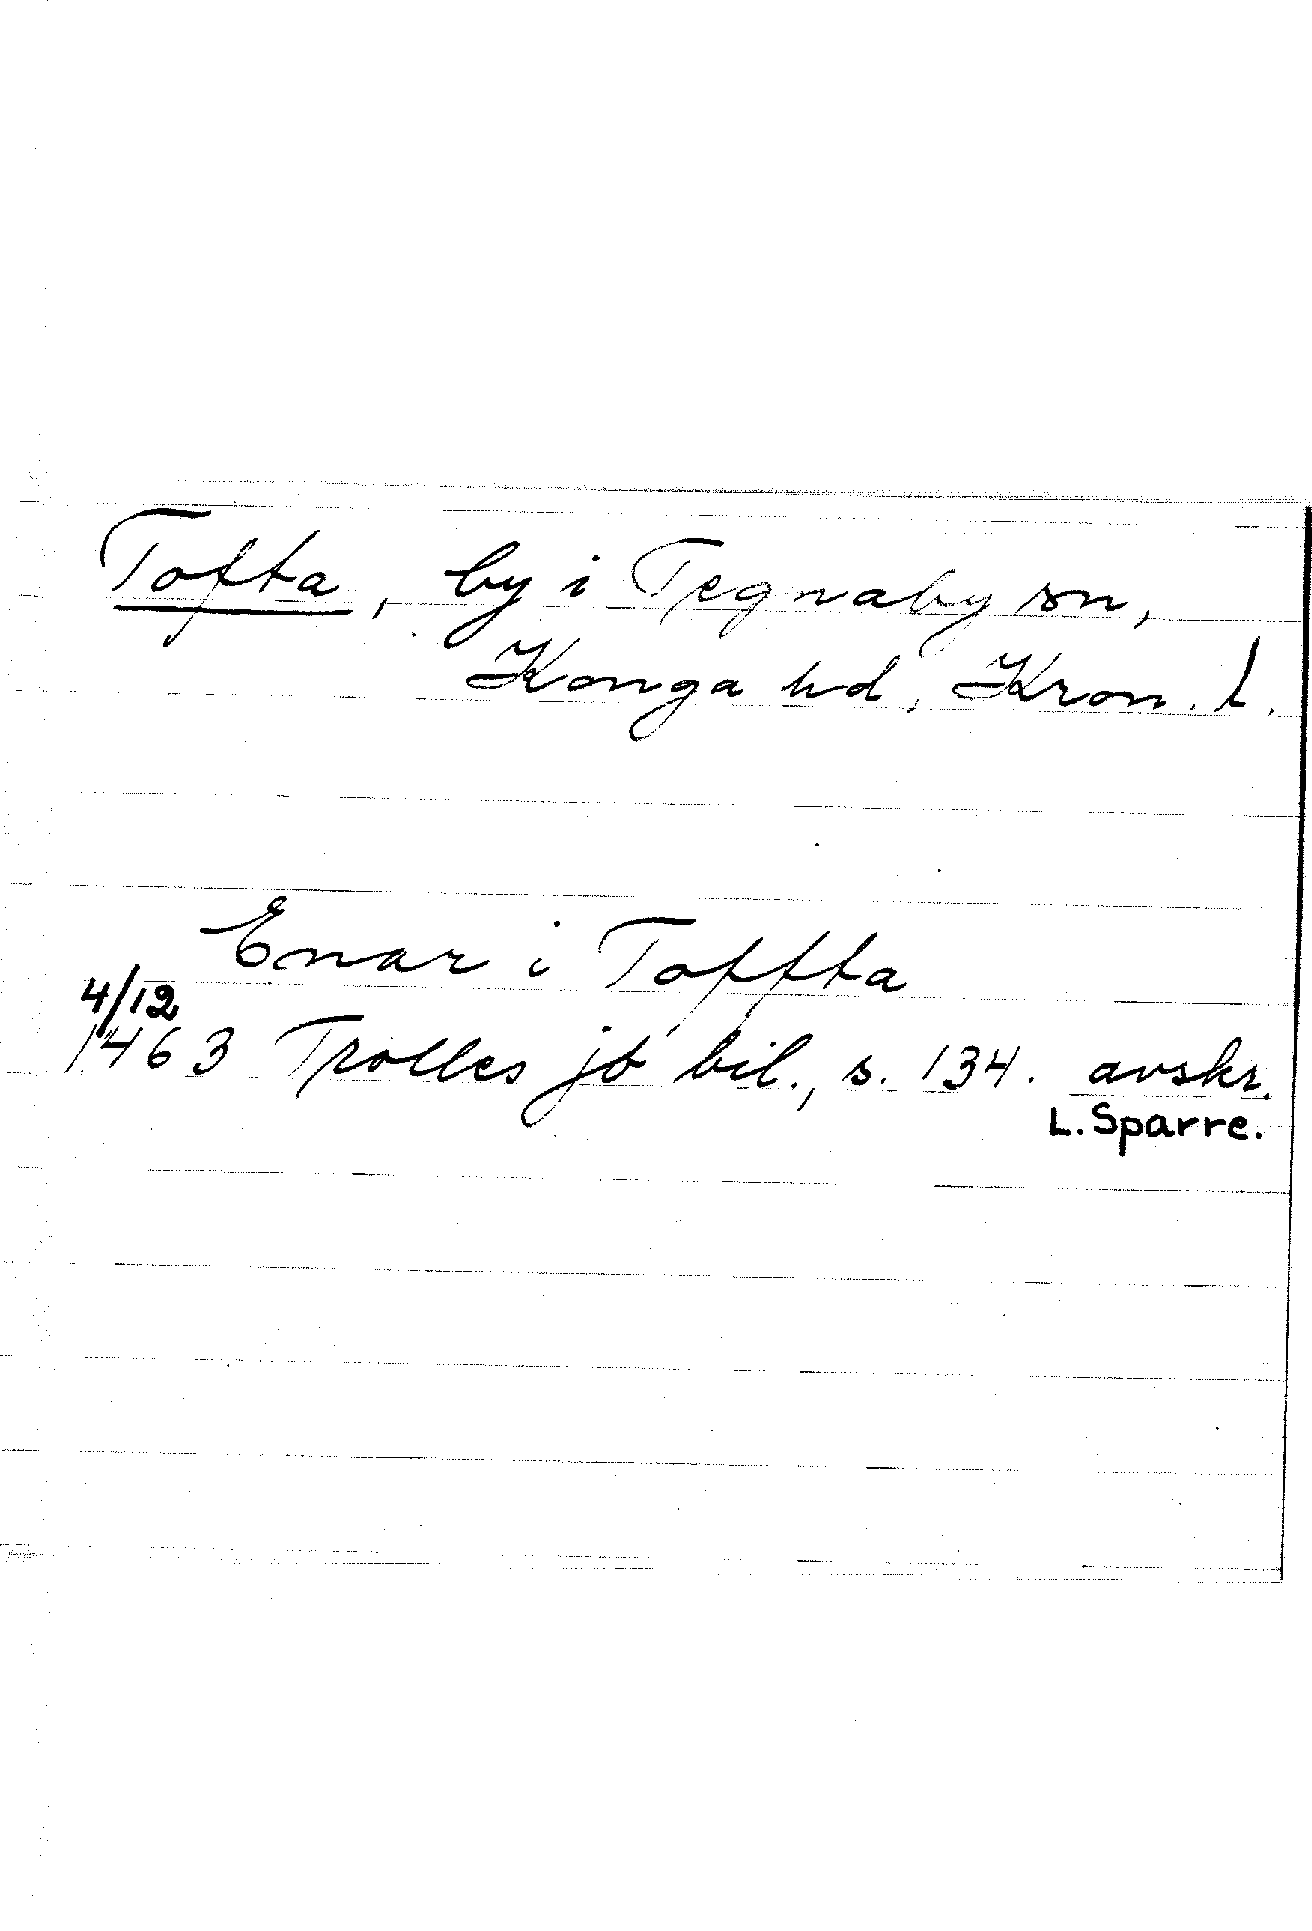 Tofta, by i Tegnaby sn,
Konga hd, Kron. l.
Enar i Toffta
4/12
1463 Trolles jb bil., s. 134. avskr.
L. Sparre.